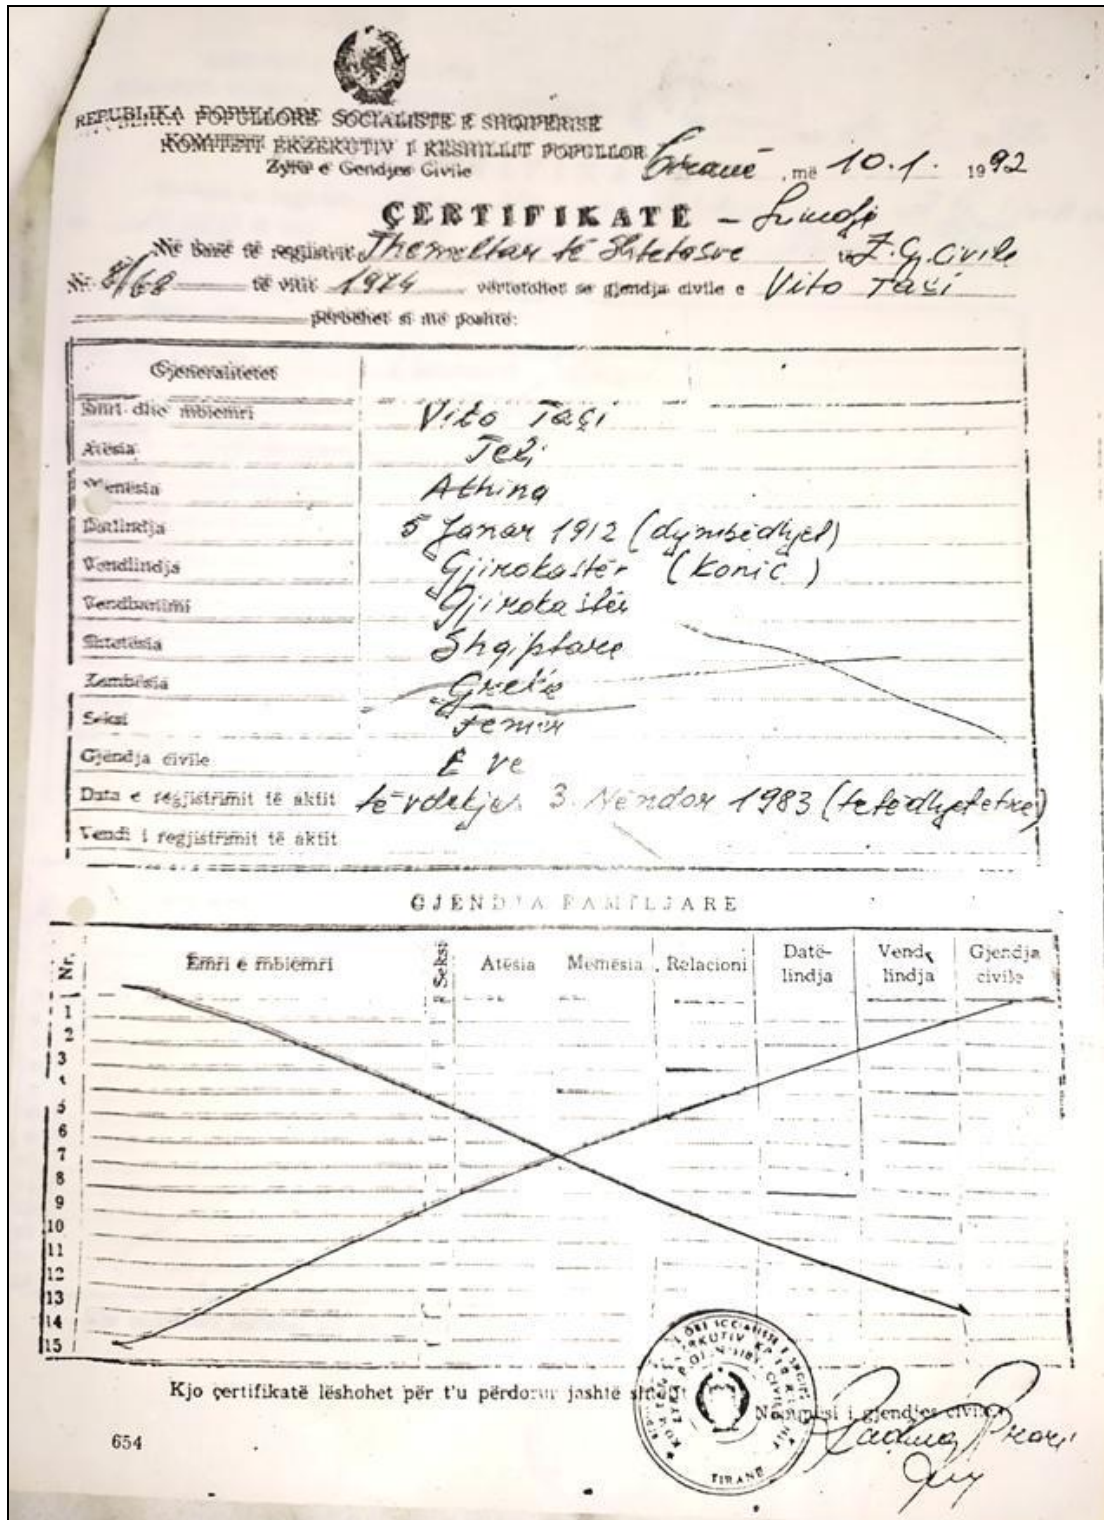 REPUBLIKA POPULLORE SOCIALISTE E SHQIPERISE
KOMITETI EKZEKUTIV I KESHILLIT POPULLOR
Zyra e Gendjes Civile
Tiranë , më 10.1. 1992
ÇERTIFIKATË - Lindje
Në bazë të regjistrit Themeltar të Shtetasve të Z.G.Civile
Nr. 8/68 të vitit 1974 vërtetohet se gjendja civile e Vito Taçi
përbëhet si më poshtë:
Gjeneralitetet
Emri dhe mbiemri Vito Taçi
Atësia
Memësia Athina
Datlindja 5 Janar 1912 (dymbëdhjet)
Vendlindja Gjirokastër (Konic)
Vendbanimi Gjirokastër
Shtetësia Shqiptare
Kombësia Greke
Seksi Femër
Gjëndja civile E Ve
Data e regjistrimit të aktit të vdekjes 3. Nëndor 1983 (tetëdhjetetre)
Vendi i regjistrimit të aktit
GJENDJA FAMILJARE
Nr. Emri e mbiemri Seksi Atësia Memësia Relacioni Datë-lindja Vend-lindja Gjendja civile
1
2
3
4
5
6
7
8
9
10
11
12
13
14
15
Kjo çertifikatë lëshohet për t'u përdorur jashtë
Nëpunësi i gjendjes civile
TIRANË
654